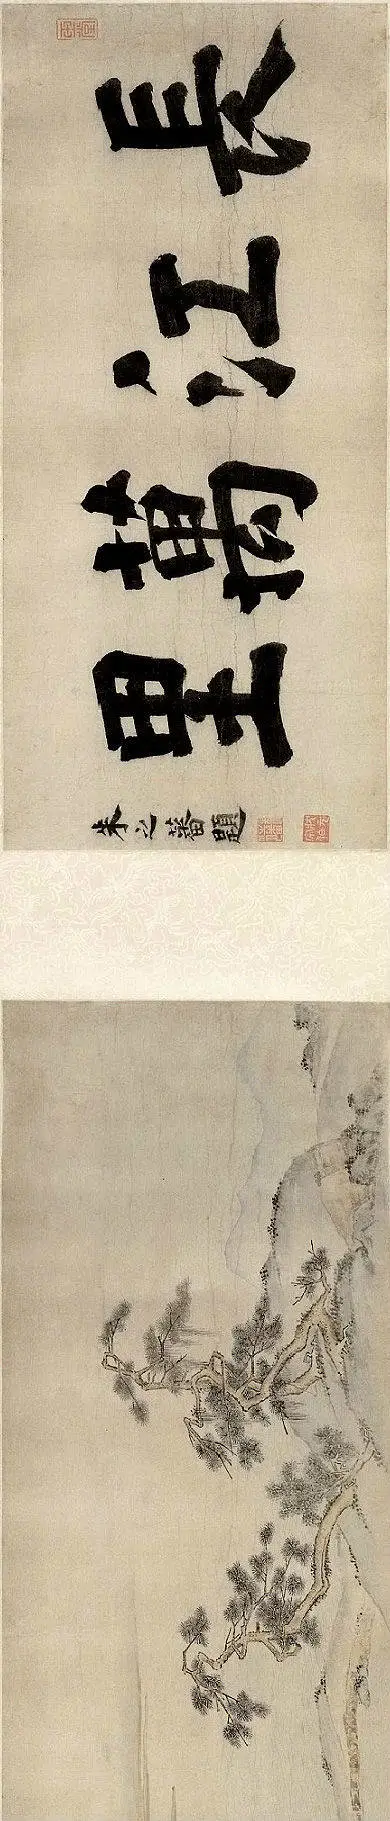 長江萬里
朱之蕃題